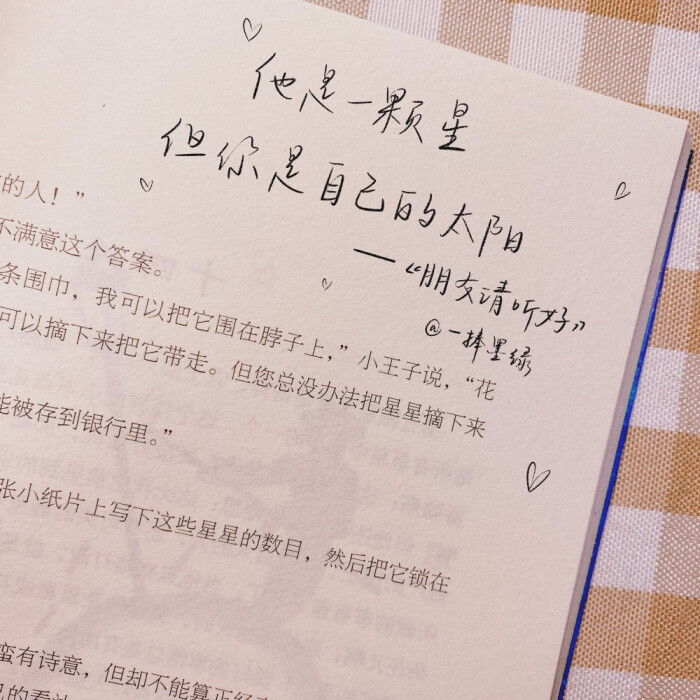 他是一颗星
但你是自己的太阳
——“朋友请听好”
@一捧墨绿
的人！”
不满意这个答案。
条围巾，我可以把它围在脖子上，”小王子说，“花
可以摘下来把它带走。但您总没办法把星星摘下来
能被存到银行里。”
张小纸片上写下这些星星的数目，然后把它锁在
蛮有诗意，但却不能算正经